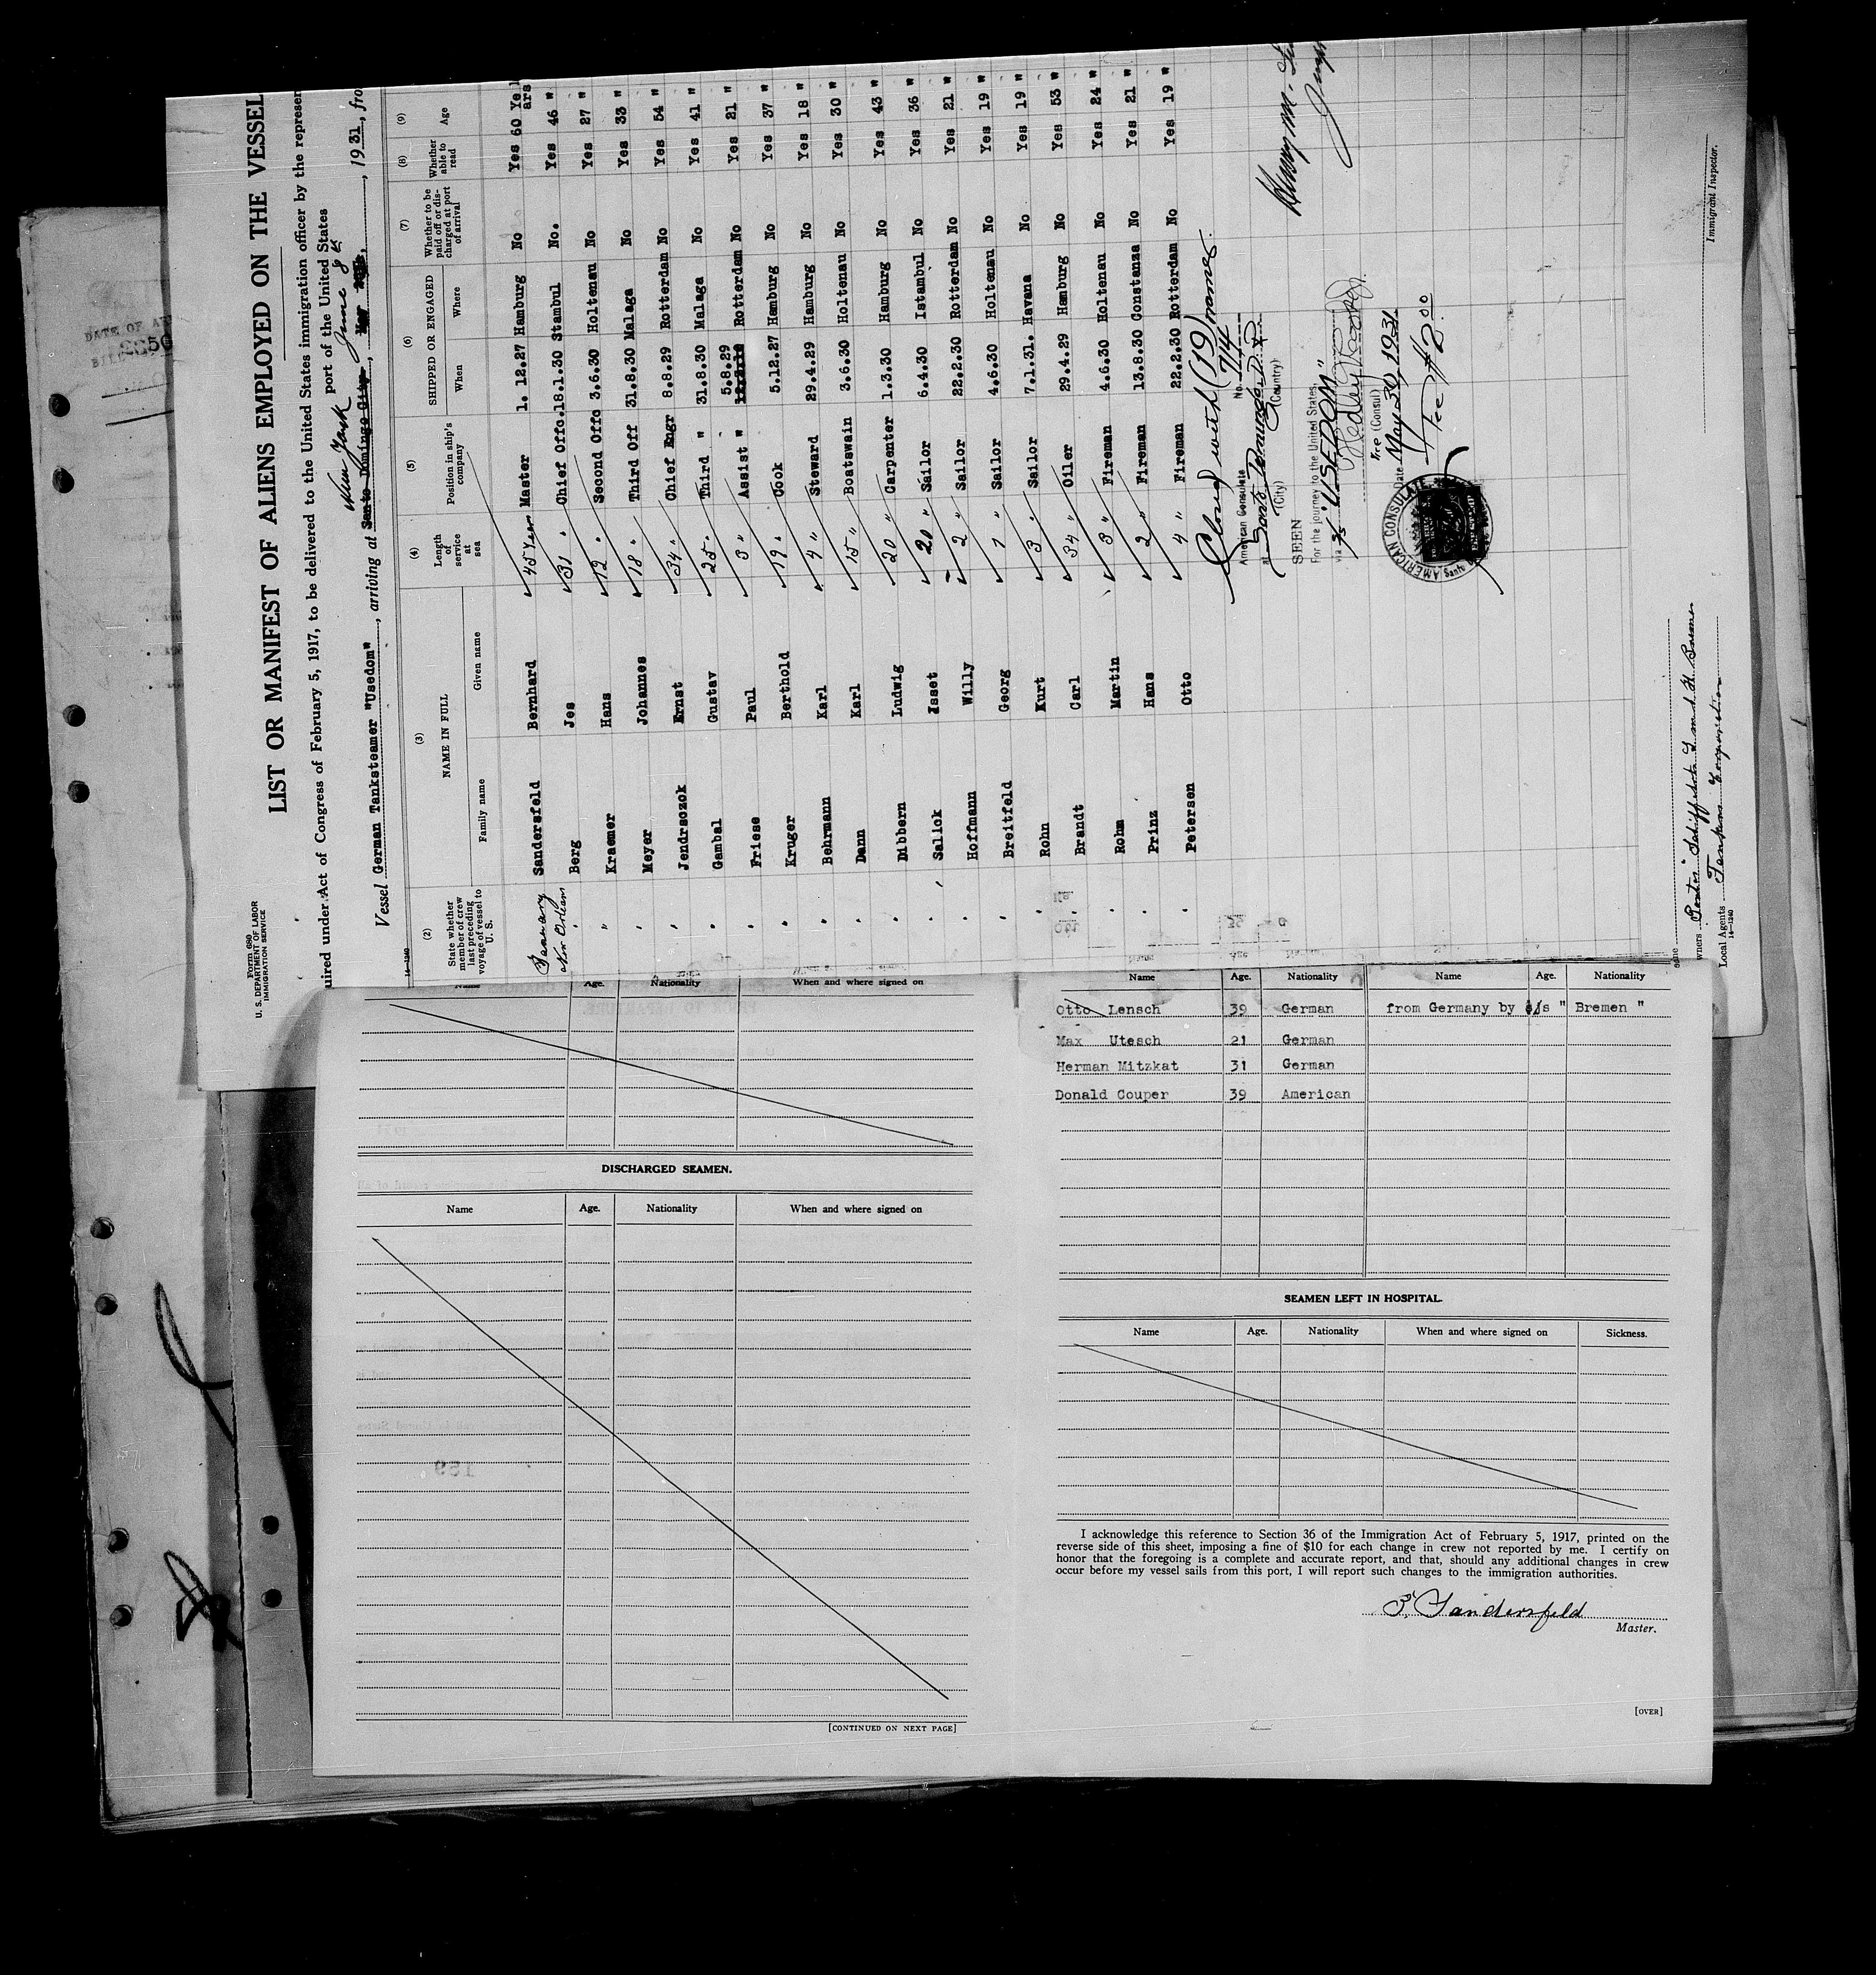 Form 680
U. S. DEPARTMENT OF LABOR
IMMIGRATION SERVICE
LIST OR MANIFEST OF ALIENS EMPLOYED ON THE VESSEL
uired under Act of Congress of February 5, 1917, to be delivered to the United States immigration officer by the represen
New York port of the United States
Vessel German Tanksteamer "Usedom", arriving at Santo Domingo City, June 8th, 1931, fro
14-1240
(2) (3) (4) (5) (6) (7) (8) (9)
State whether member of crew last preceding voyage of vessel to U. S. NAME IN FULL Length of service at sea Position in ship's company SHIPPED OR ENGAGED Whether to be paid off or discharged at port of arrival Whether able to read Age
Family name Given name When Where
January Sandersfeld Bernhard 45 Years Master 1. 12.27 Hamburg No Yes 60 Years
New Orleans
" Berg Jes 31 " Chief Offc. 18.1.30 Stambul No. Yes 46 "
" Kraemer Hans 12 " Second Offc 3.6.30 Holtenau No Yes 27 "
" Meyer Johannes 18 " Third Off 31.8.30 Malaga No Yes 33 "
" Jendrsczok Ernst 34 " Chief Engr 8.8.29 Rotterdam No Yes 54 "
" Gambal Gustav 25 " Third " 31.8.30 Malaga No Yes 41 "
" Friese Paul 3 " Assist " 5.8.29 Rotterdam No Yes 21 "
" Kruger Berthold 19 " Cook 5.12.27 Hamburg No Yes 37 "
" Behrmann Karl 4 " Steward 29.4.29 Hamburg No Yes 18 "
" Dann Karl 15 " Boatswain 3.6.30 Holtenau No Yes 30 "
" Dibbern Ludwig 20 " Carpenter 1.3.30 Hamburg No Yes 43 "
" Salick Isset 20 " Sailor 6.4.30 Istambul No Yes 36 "
" Hoffmann Willy 2 " Sailor 22.2.30 Rotterdam No Yes 21 "
" Breitfeld Georg 1 " Sailor 4.6.30 Holtenau No Yes 19 "
" Rohn Kurt 3 " Sailor 7.1.31. Havana No Yes 19 "
" Brandt Carl 34 " Oiler 29.4.29 Hamburg No Yes 53 "
" Rohm Martin 3 " Fireman 4.6.30 Holtenau No Yes 24 "
" Prinz Hans 2 " Fireman 13.8.30 Constanza No Yes 21 "
" Petersen Otto 4 " Fireman 22.2.30 Rotterdam No Yes 19 "
Closed with (19) names.
American Consulate No. 714
at Santo Domingo, D.R.
(City) (Country)
SEEN
For the journey to the United States,
via "USEDOM"
(Consul)
Date May 30, 1931
Fee $2.00
AMERICAN CONSULATE
Immigrant Inspector.
Local Agents
14-1240
Name Age. Nationality When and where signed on
DISCHARGED SEAMEN.
Name Age. Nationality When and where signed on
[CONTINUED ON NEXT PAGE]
Name Age. Nationality Name Age. Nationality
Otto Lensch 39 German from Germany by s/s " Bremen "
Max Utesch 21 German
Herman Mitzkat 31 German
Donald Couper 39 American
SEAMEN LEFT IN HOSPITAL.
Name Age. Nationality When and where signed on Sickness.
I acknowledge this reference to Section 36 of the Immigration Act of February 5, 1917, printed on the
reverse side of this sheet, imposing a fine of $10 for each change in crew not reported by me. I certify on
honor that the foregoing is a complete and accurate report, and that, should any additional changes in crew
occur before my vessel sails from this port, I will report such changes to the immigration authorities.
B. Sandersfeld
Master.
[OVER]